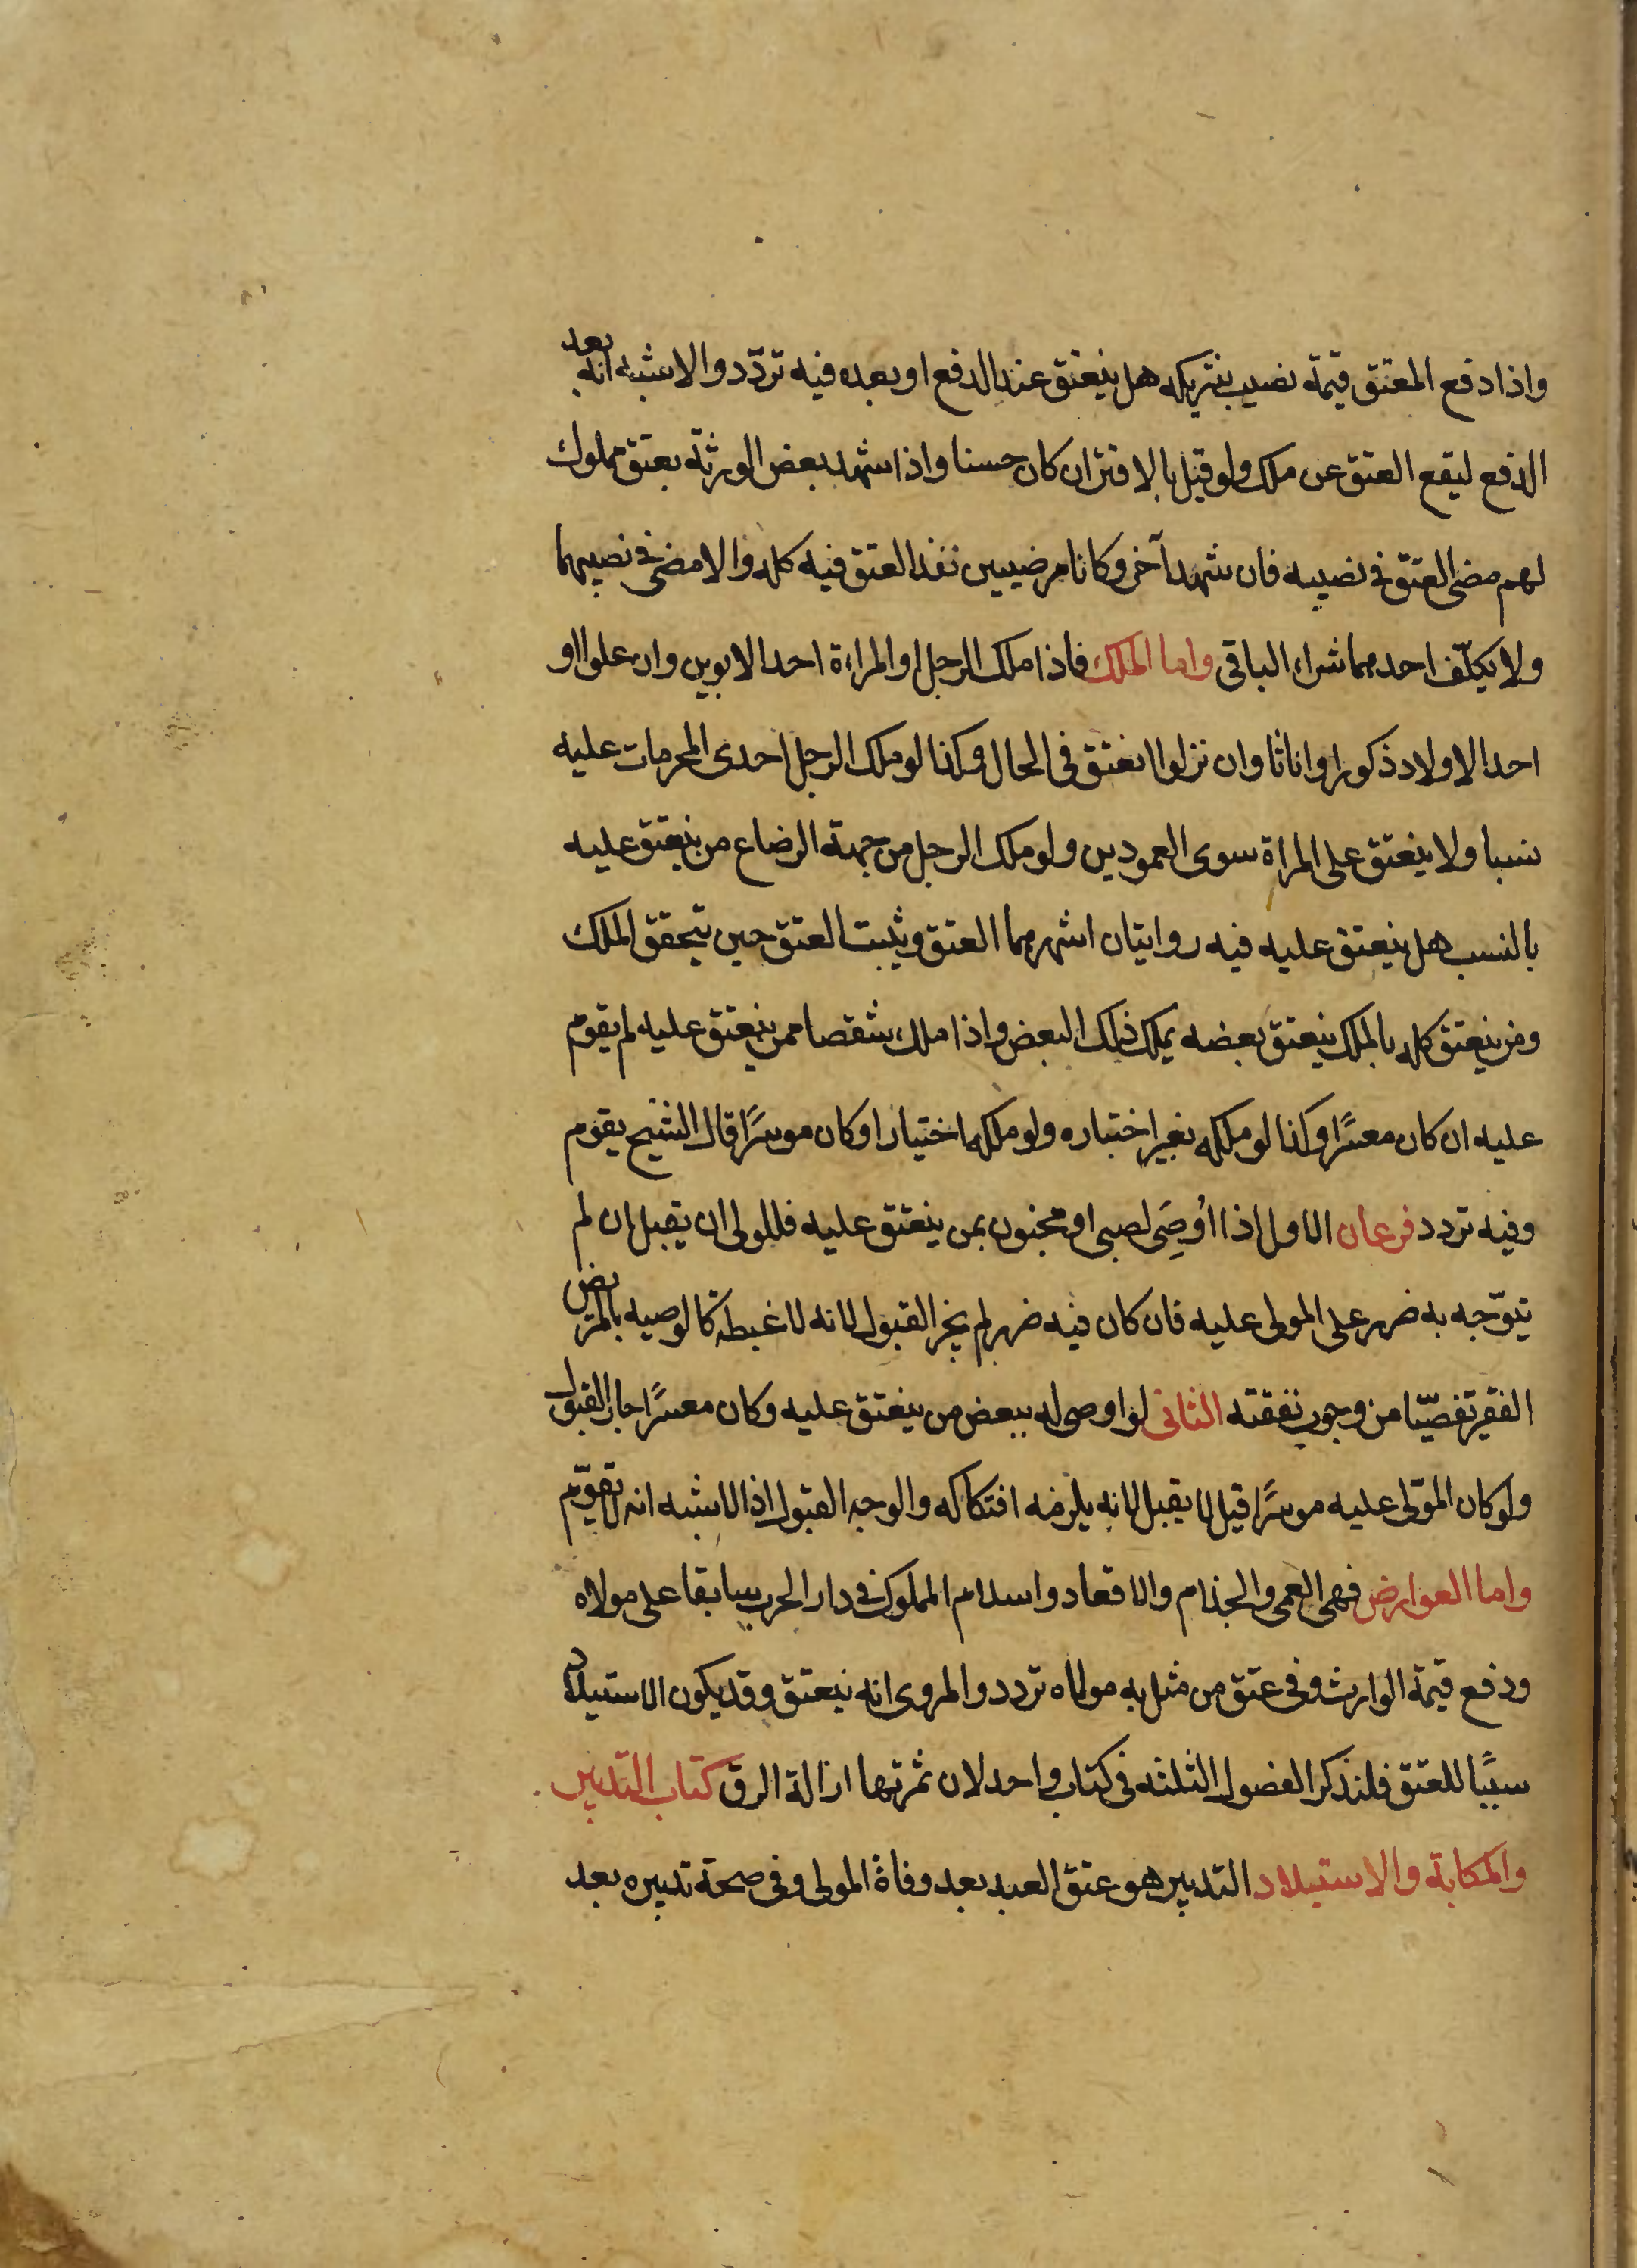 واذا دفع المعتق قيمة نصيب شريكه هل ينعتق عند الدفع او بعده فيه تردّد والاشبه انه بعد
الدفع ليقع العتق عن ملك ولو قيل بالاقتران كان حسنا واذا شهد بعض الورثة بعتق مملوك
لهم مضى العتق فى نصيبه فان شهد آخر وكانا مرضيين نفذ العتق فيه كله والا مضى فى نصيبهما
ولا يكلّف احدهما شراء الباقى واما الملك فاذا ملك الرجل او المراءة احد الابوين وان علوا او
احد الاولاد ذكورا واناثا وان نزلوا انعتق فى الحال وكذا لو ملك الرجل احدى المحرمات عليه
نسبا ولا ينعتق على المراة سوى العمودين ولو ملك الرجل من جهة الرضاع من ينعتق عليه
بالنسب هل ينعتق عليه فيه روايتان اشهرهما العتق ويثبت العتق حين يتحقق الملك
ومن ينعتق كله بالملك ينعتق بعضه بملك ذلك البعض واذا ملك شقصا ممن ينعتق عليه لم يقوم
عليه ان كان معسرًا وكذا لو ملكه بغير اختياره ولو ملكه اختيارا وكان موسرًا قال الشيخ يقوم
وفيه تردد فرعان الاول اذا اُوصِىَ لصبى او مجنون بمن ينعتق عليه فللولى ان يقبل ان لم
يتوّجه به ضرر على المولى عليه فان كان فيه ضرر لم يجز القبول لانه لا غبطة كالوصيه بالمريض
الفقير تفصّيًا من وجوب نفقته الثانى لو اوصى له ببعض من ينعتق عليه وكان معسرًا جاز القبول
ولو كان المولّى عليه موسرًا قيل لا يقبل لانه يلزمه افتكاكه والوجه القبول اذ الاشبه انه لا يقوّم
واما العوارض فهى العمى والجذام والاقعاد واسلام المملوك فى دار الحرب سابقا على مولاه
ودفع قيمة الوارث وفى عتق من مثل به مولاه تردد والمروى انه ينعتق وقد يكون الاستيلاد
سببًا للعتق فلنذكر الفصول الثلثه فى كتاب واحد لان ثمرتها ازالة الرق كتاب التدبير
والمكاتبة والاستيلاد التدبير هو عتق العبد بعد وفاة المولى وفى صحة تدبيره بعد